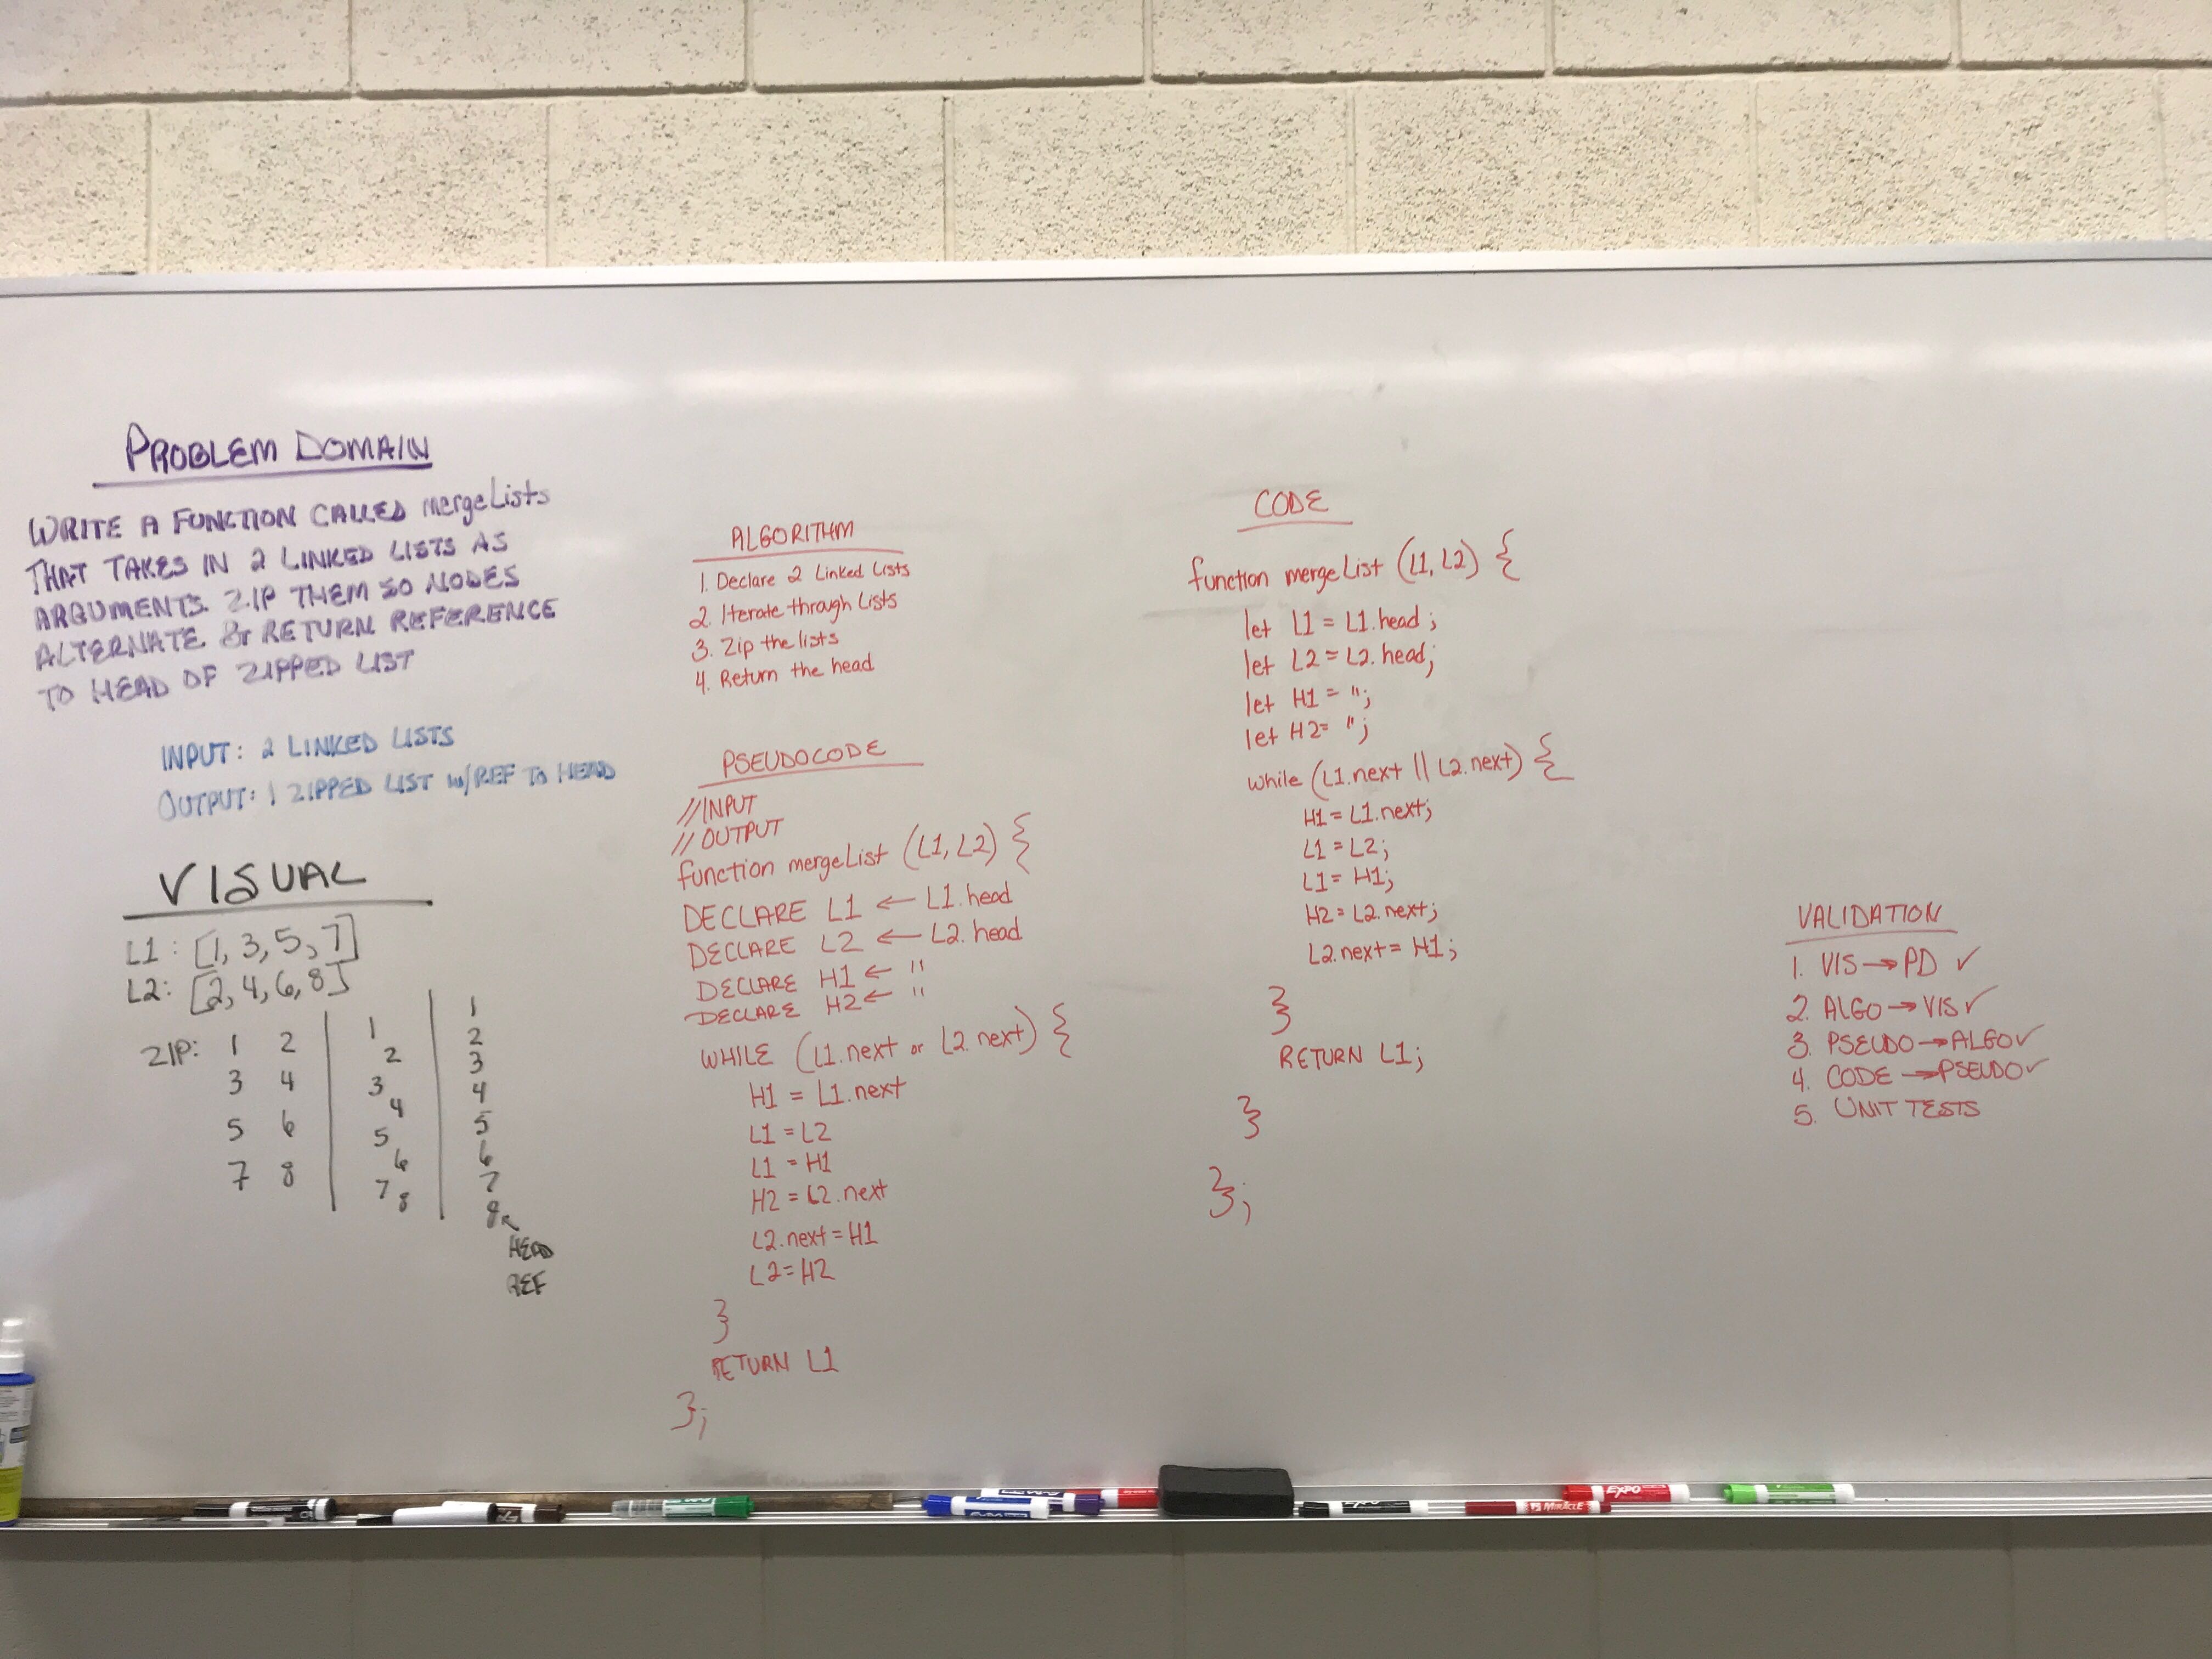 PROBLEM DOMAIN
WRITE A FUNCTION CALLED mergeLists
THAT TAKES IN 2 LINKED LISTS AS
ARGUMENTS. ZIP THEM SO NODES
ALTERNATE & RETURN REFERENCE
TO HEAD OF ZIPPED LIST
INPUT: 2 LINKED LISTS
OUTPUT: 1 ZIPPED LIST w/REF TO HEAD
VISUAL
L1: [1, 3, 5, 7]
L2: [2, 4, 6, 8]
ZIP: 1 2
3 4
5 6
7 8
1
2
3
4
5
6
7
8
1
2
3
4
5
6
7
8
HEAD
REF
ALGORITHM
1. Declare 2 Linked Lists
2. Iterate through Lists
3. Zip the lists
4. Return the head
PSEUDOCODE
//INPUT
//OUTPUT
function mergeList (L1, L2) {
DECLARE L1 ← L1.head
DECLARE L2 ← L2.head
DECLARE H1 ← "
DECLARE H2 ← "
WHILE (L1.next or L2.next) {
H1 = L1.next
L1 = L2
L1 = H1
H2 = L2.next
L2.next = H1
L2 = H2
}
RETURN L1
};
CODE
function mergeList (L1, L2) {
let L1 = L1.head;
let L2 = L2.head;
let H1 = ";
let H2 = ";
while (L1.next || L2.next) {
H1 = L1.next;
L1 = L2;
L1 = H1;
H2 = L2.next;
L2.next = H1;
}
RETURN L1;
}
};
VALIDATION
1. VIS → PD ✓
2. ALGO → VIS ✓
3. PSEUDO → ALGO ✓
4. CODE → PSEUDO ✓
5. UNIT TESTS
EXPO
EXPO
EXPO
MIRACLE